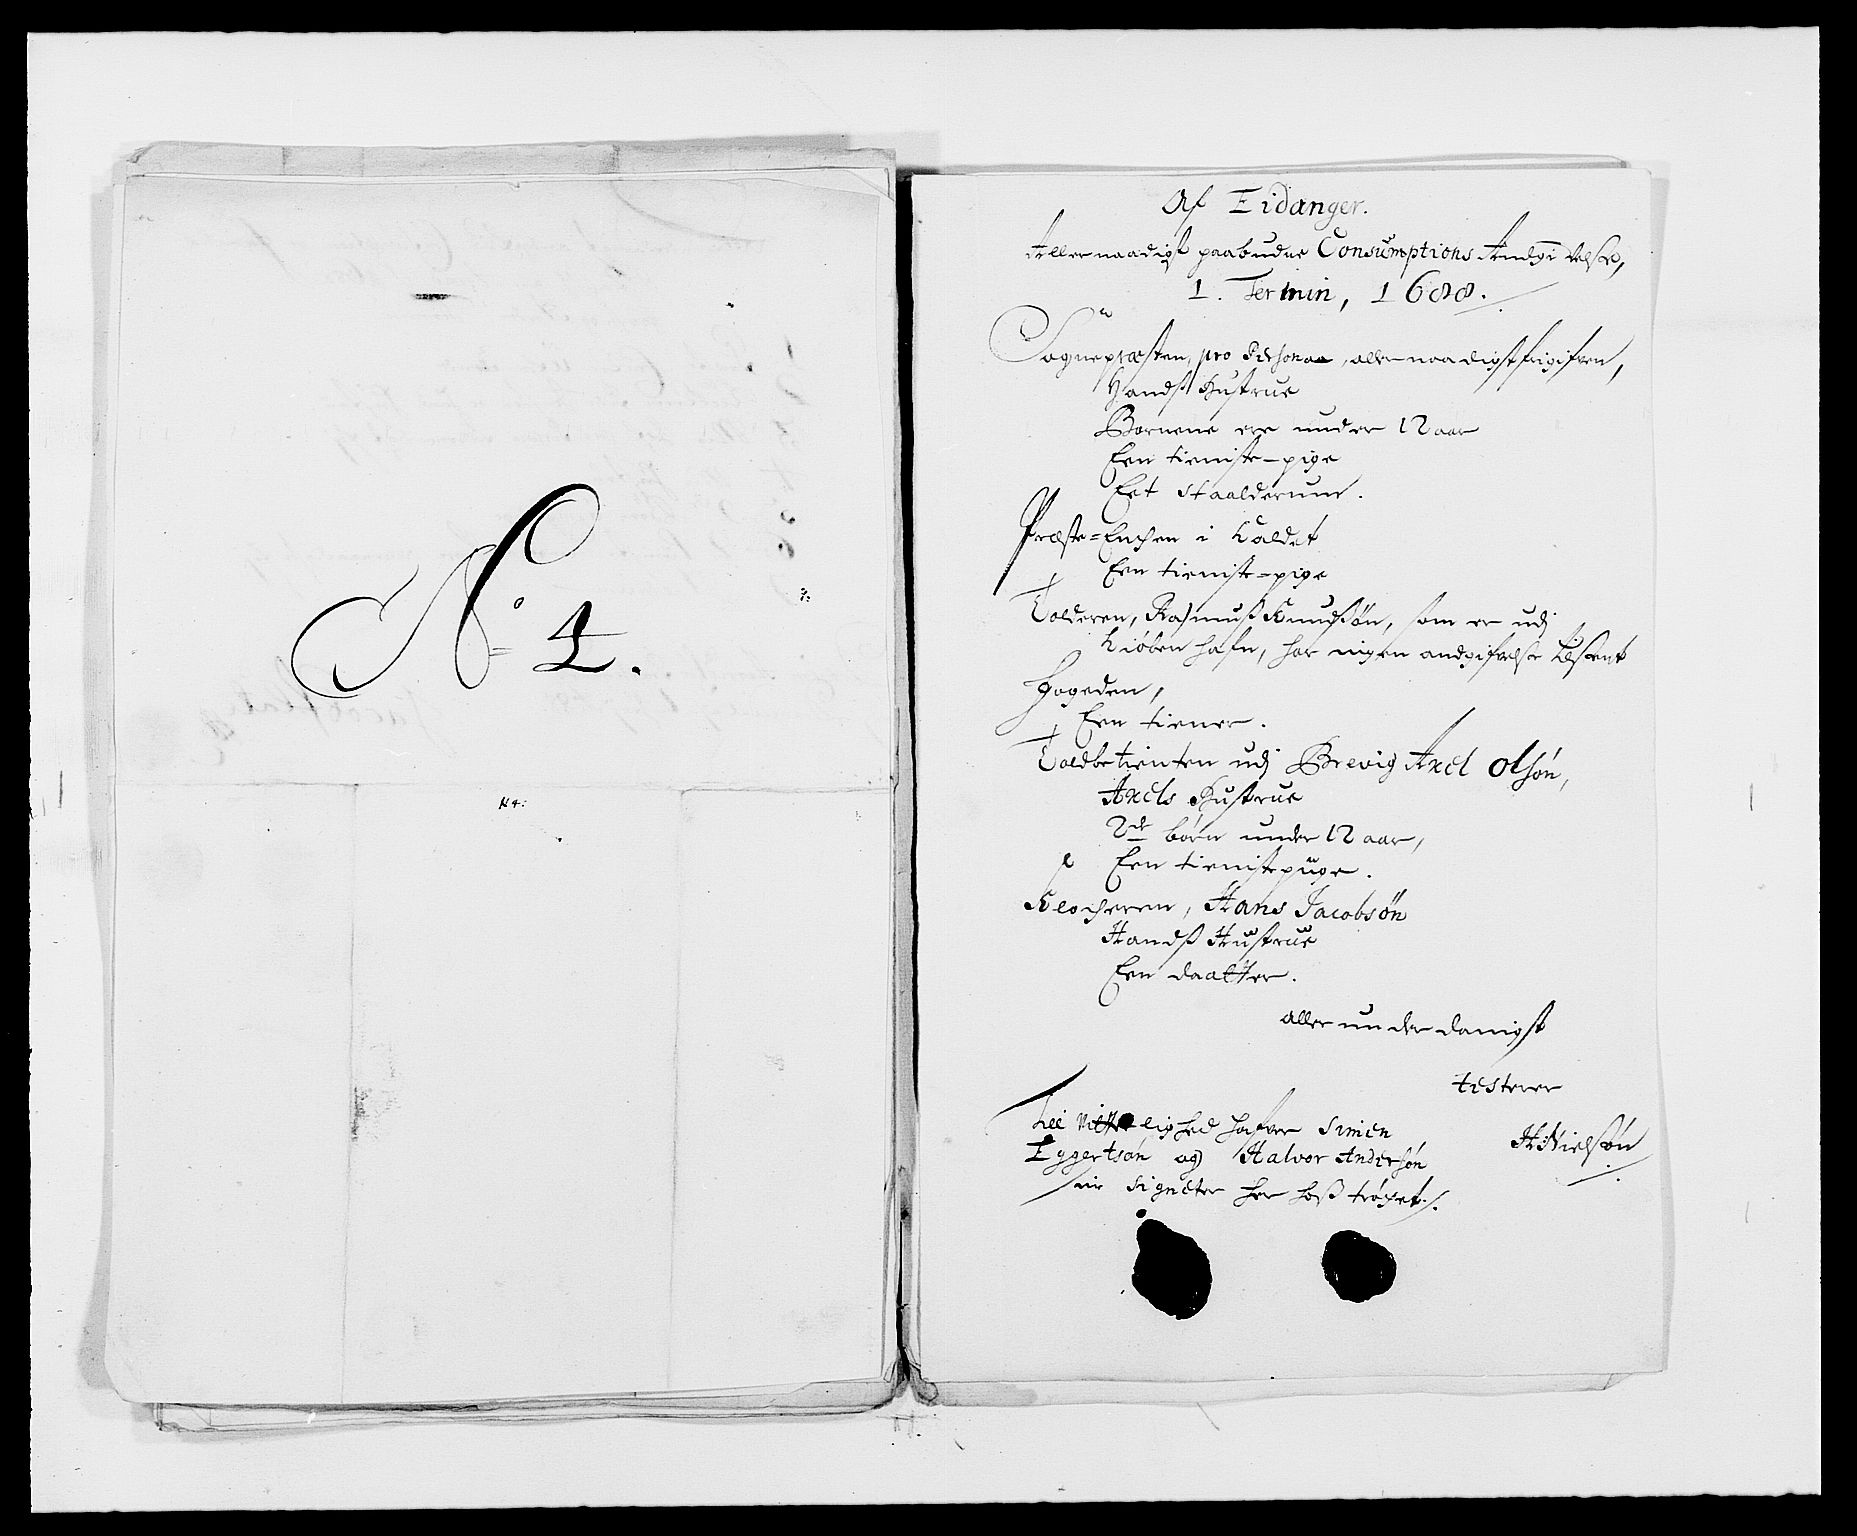 No 4.
N 4:
Af Eidanger.
Allernaadigst paabudne Consumptions Andgivelse,
1. Termin, 1688.
Sognepræsten, pro Persona, allernaadigst frigifven,
Handß Hustrue
Børnene ere under 12 aar
Een tieniste-pige
Eet Staalderum.
Præste-Enchen i Kaldet
Een tieniste-pige
Tolderen, Rasmuß Knudßøn, som er udj
Kiøbenhafn, har ingen andgifvelse
Fogeden,
Een tiener.
Toldbetienten udj Brevig Axel Olsøn,
Axels Hustrue
2de børn under 12 aar,
Een tienistepiige.
Klocheren, Hans Jacobsøn
Handß Hustrue
Een daatter.
allerunderdanigst
testerer
HNielsøn
Till vitterlighed hafver Simen
Eggertsøn og Halvor Andersøn
Signeter her hoß trøgt.